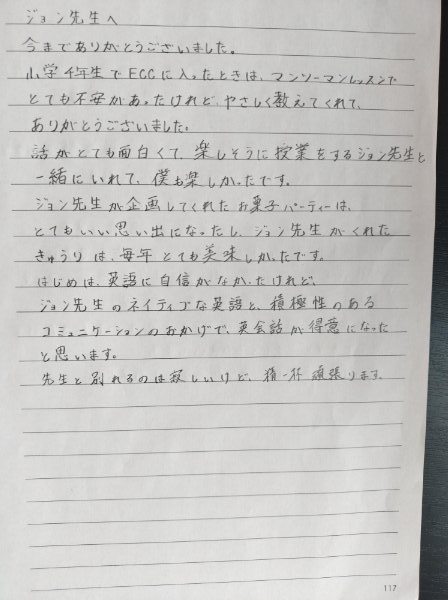 ジョン先生へ
今までありがとうございました。
小学4年生でECCに入ったときは、マンツーマンレッスンで
とても不安があったけれど、やさしく教えてくれて、
ありがとうございました。
話がとても面白くて、楽しそうに授業をするジョン先生と
一緒にいれて、僕も楽しかったです。
ジョン先生が企画してくれたお菓子パーティーは、
とてもいい思い出になったし、ジョン先生がくれた
きゅうりは、毎年とても美味しかったです。
はじめは、英語に自信がなかったけれど、
ジョン先生のネイティブな英語と、積極性のある
コミュニケーションのおかげで、英会話が得意になった
と思います。
先生と別れるのは寂しいけど、精一杯頑張ります。
117